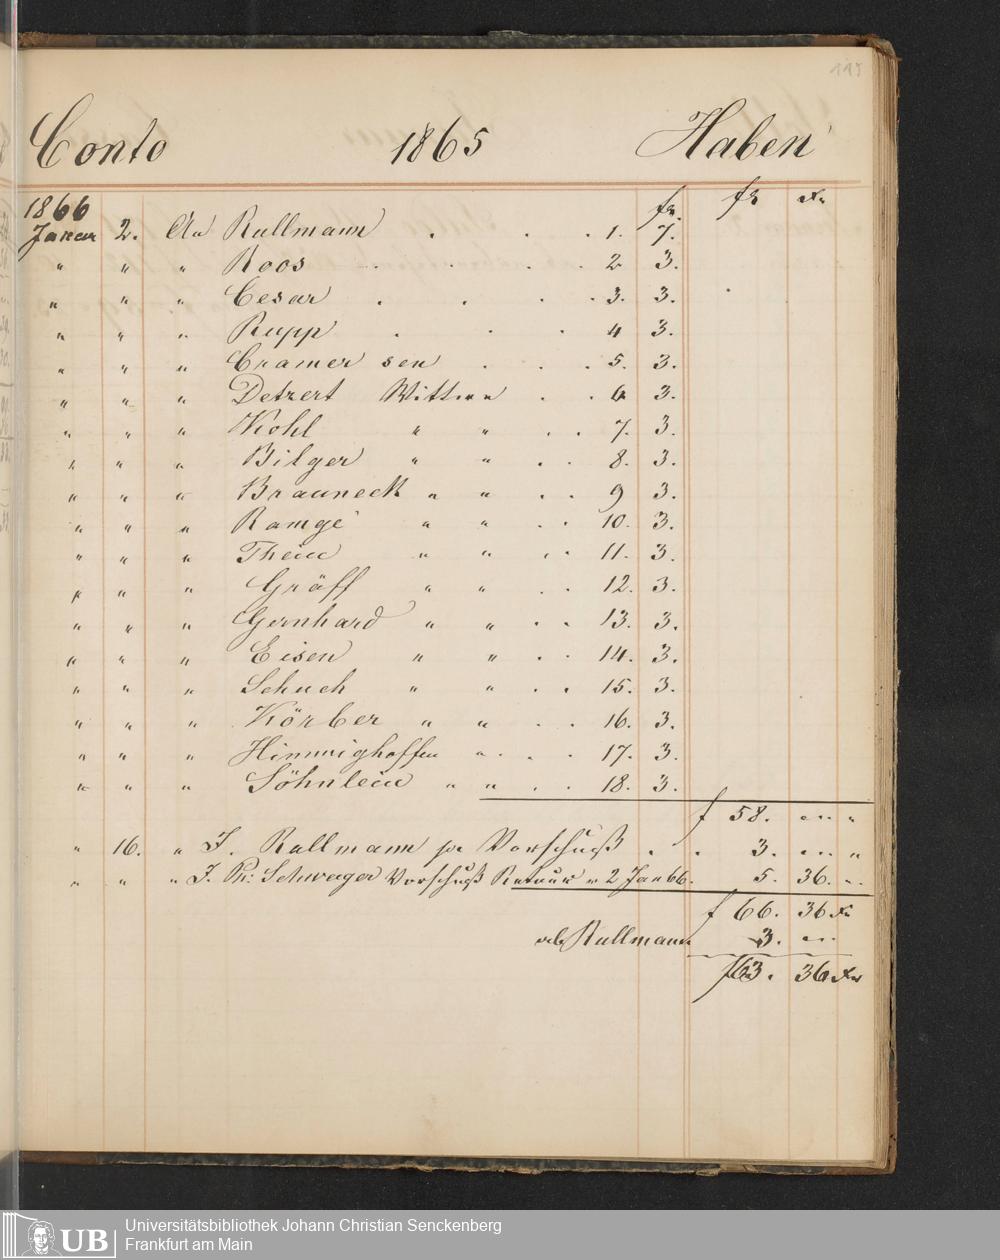 115
Conto 1865 Haben
1866 fr. fr xr
Januar 2. An Rullmann . . . 1. 7.
" " " Roos . . . 2 3.
" " " Cesar . . . . 3. 3.
" " " Rupp . . . 4 3.
" " " Cramer sen . . . 5. 3.
" " " Detzert Wittwe . . 6 3.
" " " Kohl " " . . 7. 3.
" " " Bilger " " . . 8. 3.
" " " Brauneck " " . . 9 3.
" " " Ramge " " . . 10. 3.
" " " " " . . 11. 3.
" " " Gräff " " . . 12. 3.
" " " Gernhard " " . . 13. 3.
" " " Eisen " " . . 14. 3.
" " " Schuch " " . . 15. 3.
" " " Körber " " . . 16. 3.
" " " Himmighoffen " . . . 17. 3.
" " " Söhnlein " " . . 18. 3.
f 58. " "
" 16. " J. Rullmann pr Vorschuß . . 3. " "
" " " J. Ph: Schweiger Vorschuß Retour v 2 Jan 66. 5. 36. "
f 66. 36 xr
ab Rullmann 3. "
f 63. 36 xr
Universitätsbibliothek Johann Christian Senckenberg
UB Frankfurt am Main